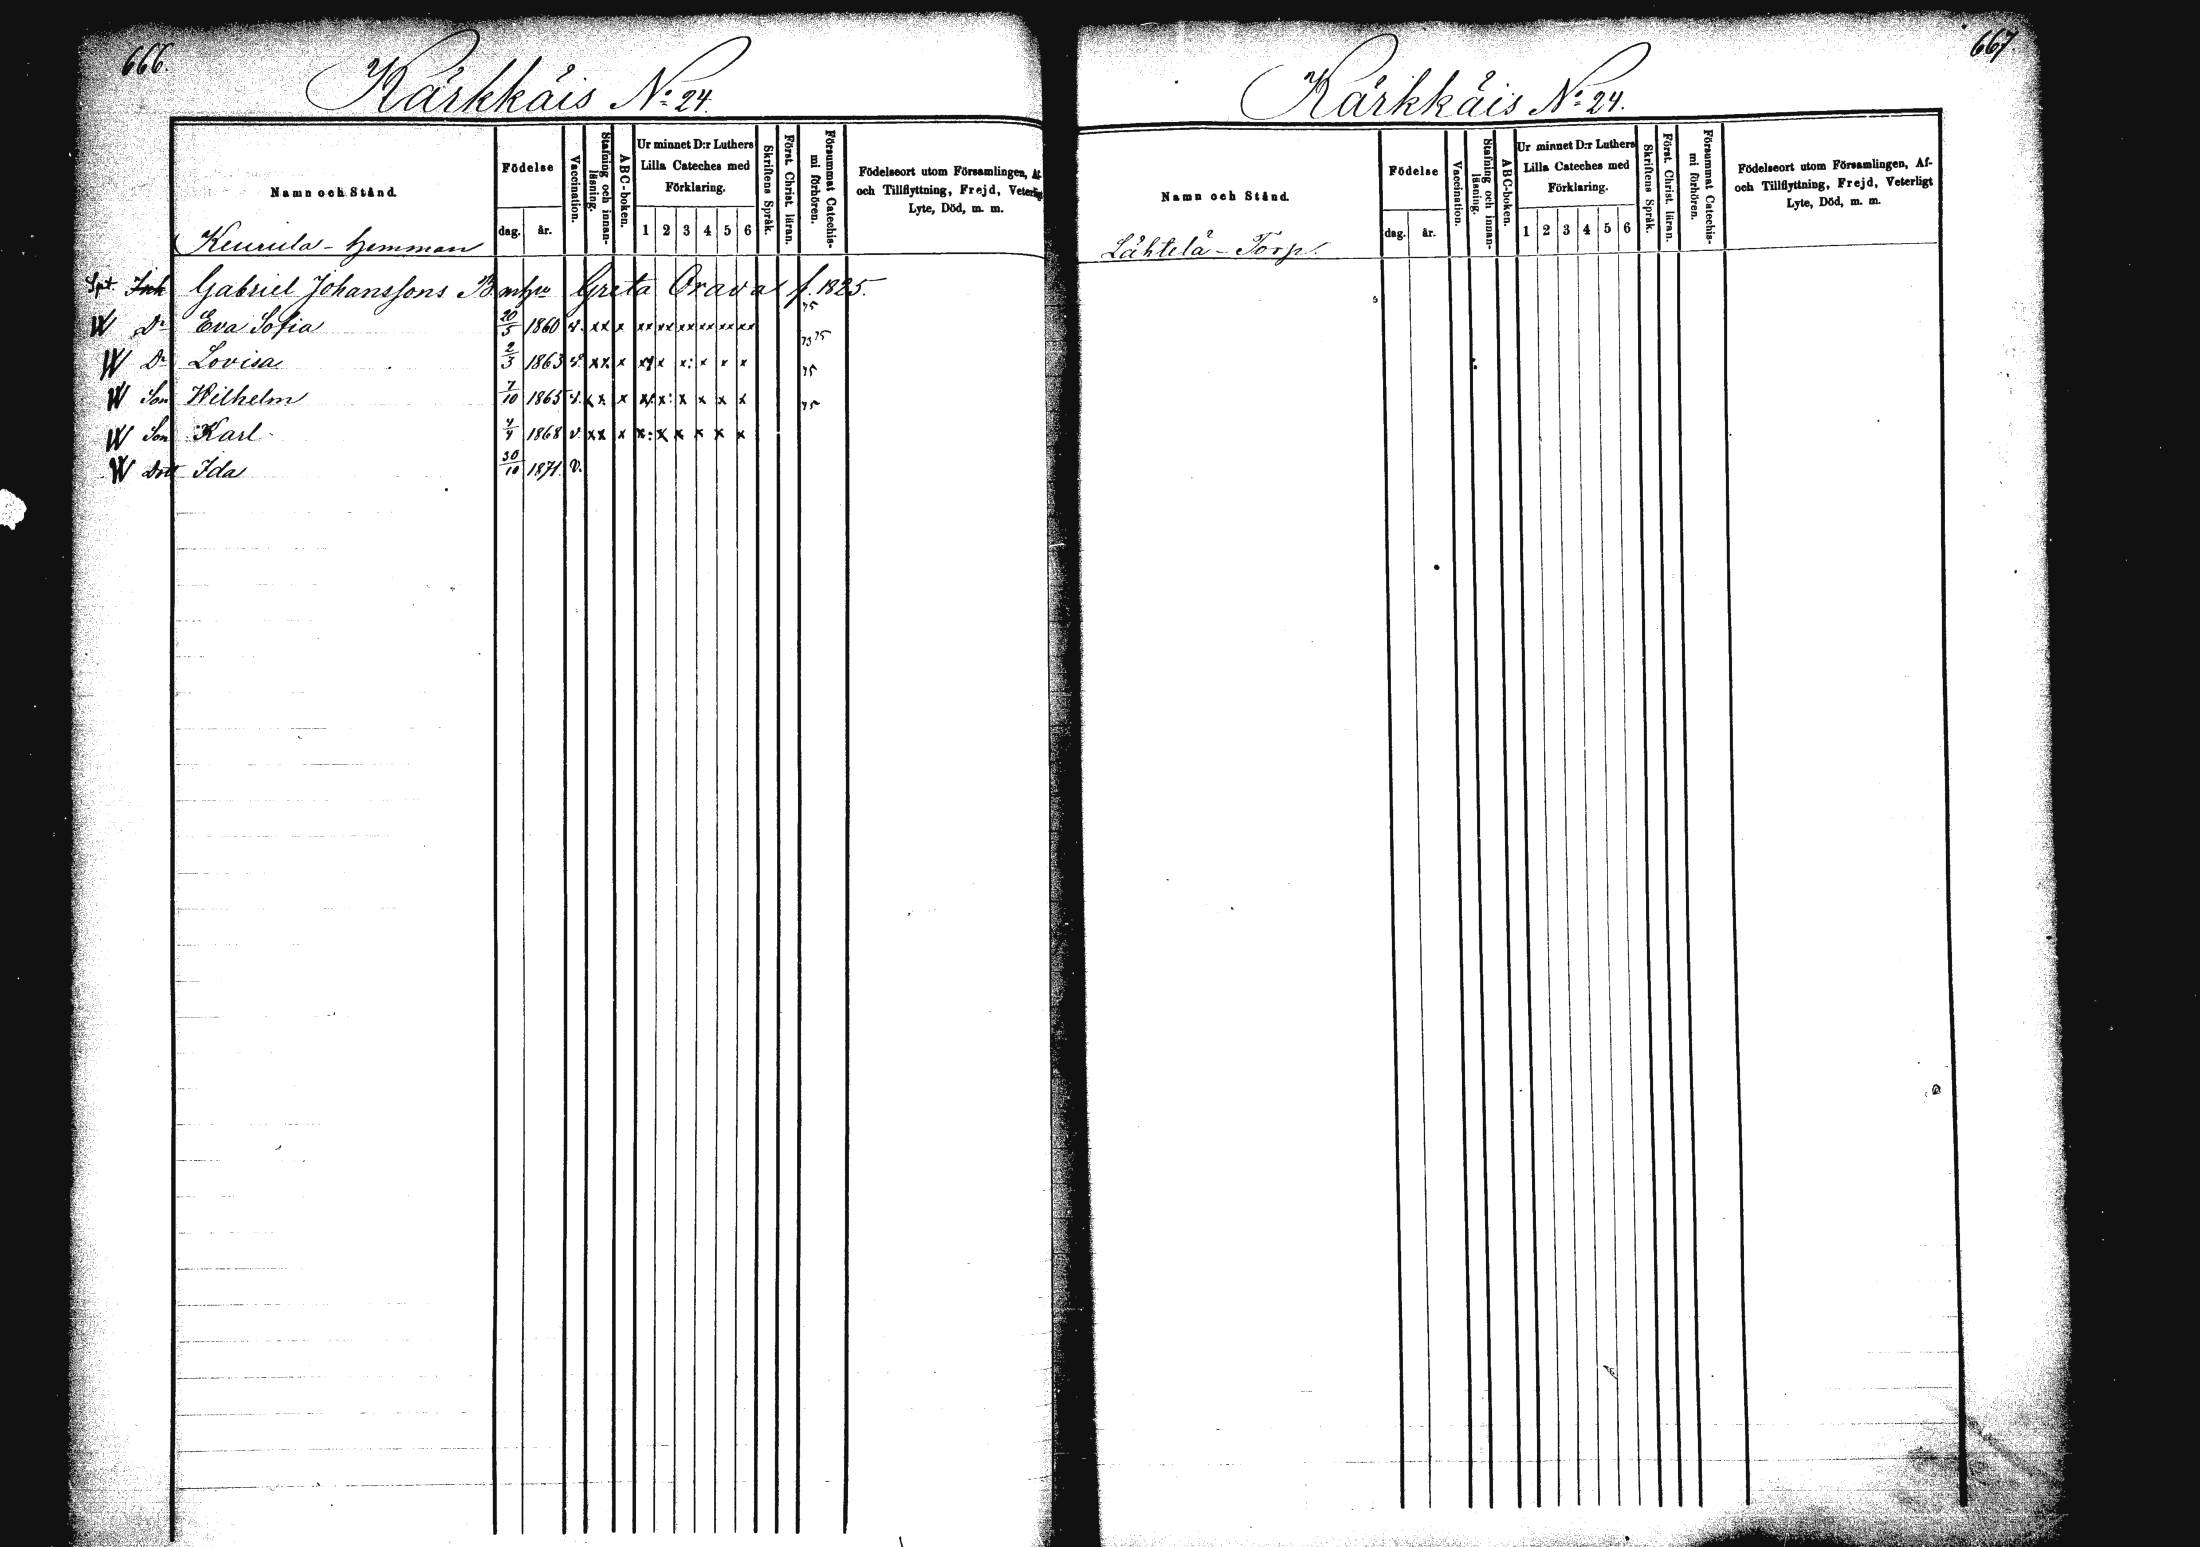 666.
Kärkkäis No 24.
Namn och Stånd.
Födelse
dag.
år.
Vaccination.
Stafning och innan-
läsning.
ABC-boken.
Ur minnet D:r Luthers
Lilla Cateches med
Förklaring.
1 2 3 4 5 6
Skriftens Språk.
Först. Christ. läran.
Försummat Catechis-
mi förhören.
Födelseort utom Församlingen, Af-
och Tillflyttning, Frejd, Veterligt
Lyte, Död, m. m.
Keurula - hemman
Gabriel Johanssons Barn Greta Orava f. 1825.
W Dr Eva Sofia 20/5 1860 v. xx x xx xx xx xx xx xx 75
W Dr Lovisa 2/3 1863 v. xx x x x x: x x x 73 75
W Son Wilhelm 7/10 1865 v. x x. x x: x: x x x x 75
W Son Karl 4/4 1868 v. xx x x: x x x x x 75
W Dott Ida 30/10 1871. v.
667.
Kärkkäis No 24.
Namn och Stånd.
Födelse
dag.
år.
Vaccination.
Stafning och innan-
läsning.
ABC-boken.
Ur minnet D:r Luthers
Lilla Cateches med
Förklaring.
1 2 3 4 5 6
Skriftens Språk.
Först. Christ. läran.
Försummat Catechis-
mi förhören.
Födelseort utom Församlingen, Af-
och Tillflyttning, Frejd, Veterligt
Lyte, Död, m. m.
Lähtelä - Torp.